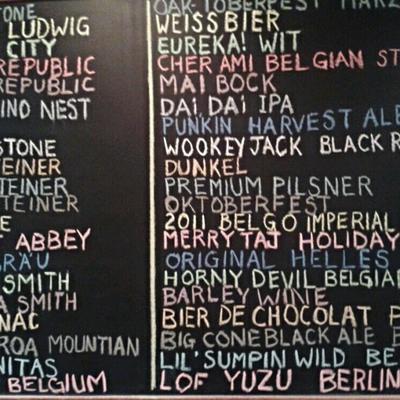 TONE OAK-TOBERFEST MARZ
LUDWIG WEISSBIER
CITY EUREKA! WIT
REPUBLIC CHER AMI BELGIAN ST
REPUBLIC MAI BOCK
INO NEST DAI DAI IPA
PUNKIN HARVEST ALE
STONE WOOKEYJACK BLACK R
TEINER DUNKEL
TEINER PREMIUM PILSNER
TEINER OKTOBERFEST
E 2011 BELGO IMPERIAL
T ABBEY MERRY TAJ HOLIDAY
BRÄU ORIGINAL HELLES
SMITH HORNY DEVIL BELGIA
A SMITH BARLEY WINE
NAC BIER DE CHOCOLAT P
ROA MOUNTIAN BIG CONE BLACK ALE
NITAS LIL'SUMPIN WILD BE
BELGIUM LOF YUZU BERLIN